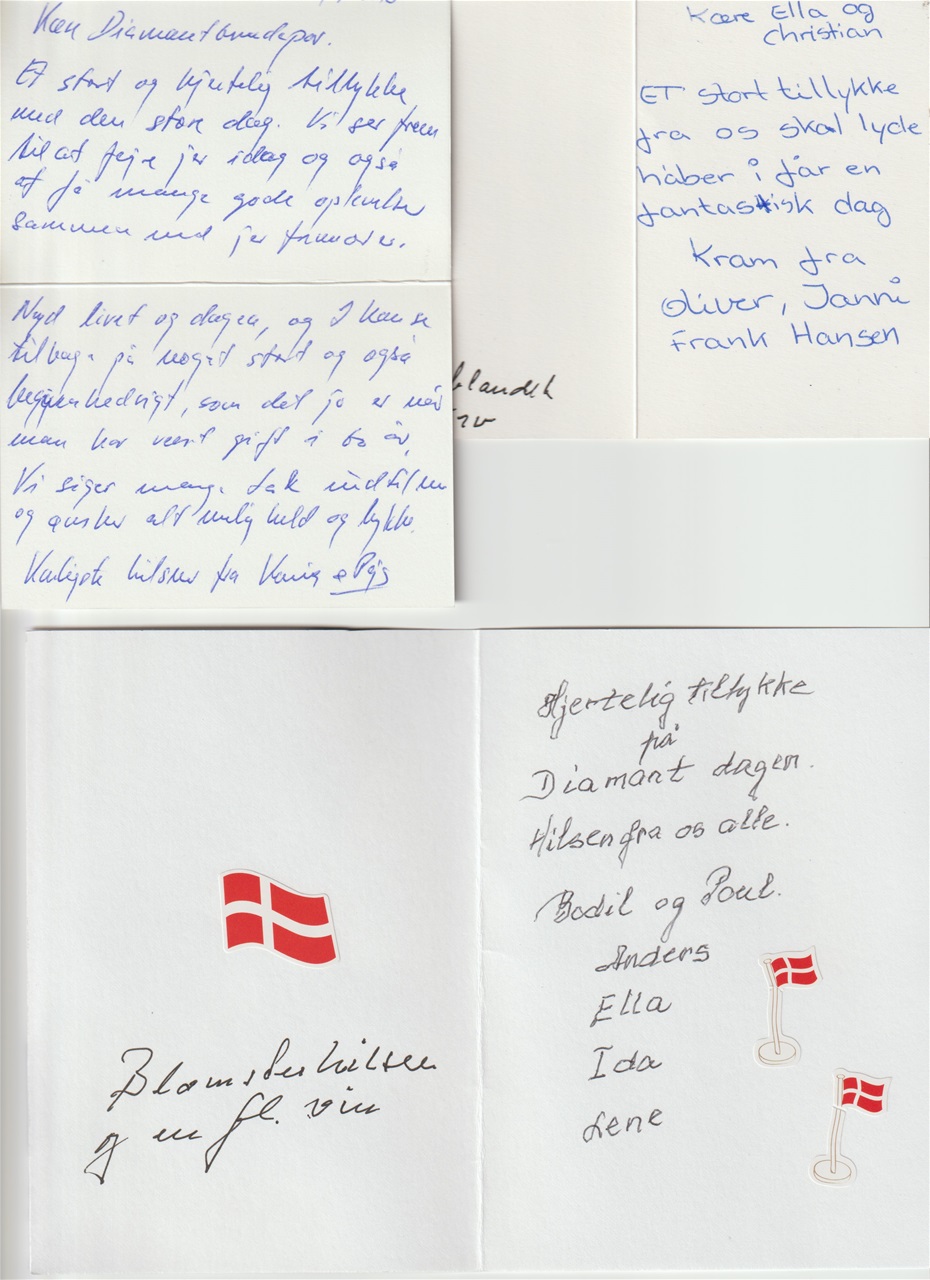 Kære Diamantbrudepar.
Et stort og hjertelig tillykke
med den store dag. Vi ser frem
til at fejre jer idag og også
at få mange gode oplevelser
sammen med jer fremover.
Nyd livet og dagen, og I kan se
tilbage på noget stort og også
begivenhedsrigt, som det jo er når
man har været gift i 60 år,
Vi siger mange tak indtil nu
og ønsker alt mulig held og lykke.
Kærligste hilsner fra
Kære Ella og
Christian
ET stort tillykke
fra os skal lyde
håber i får en
fantastisk dag
Kram fra
Oliver, Janni
Frank Hansen
Hjertelig tillykke
på
Diamant dagen.
Hilsen fra os alle.
Bodil og Poul.
Anders
Ella
Ida
Lene
Blomsterhilsen
og en fl. vin